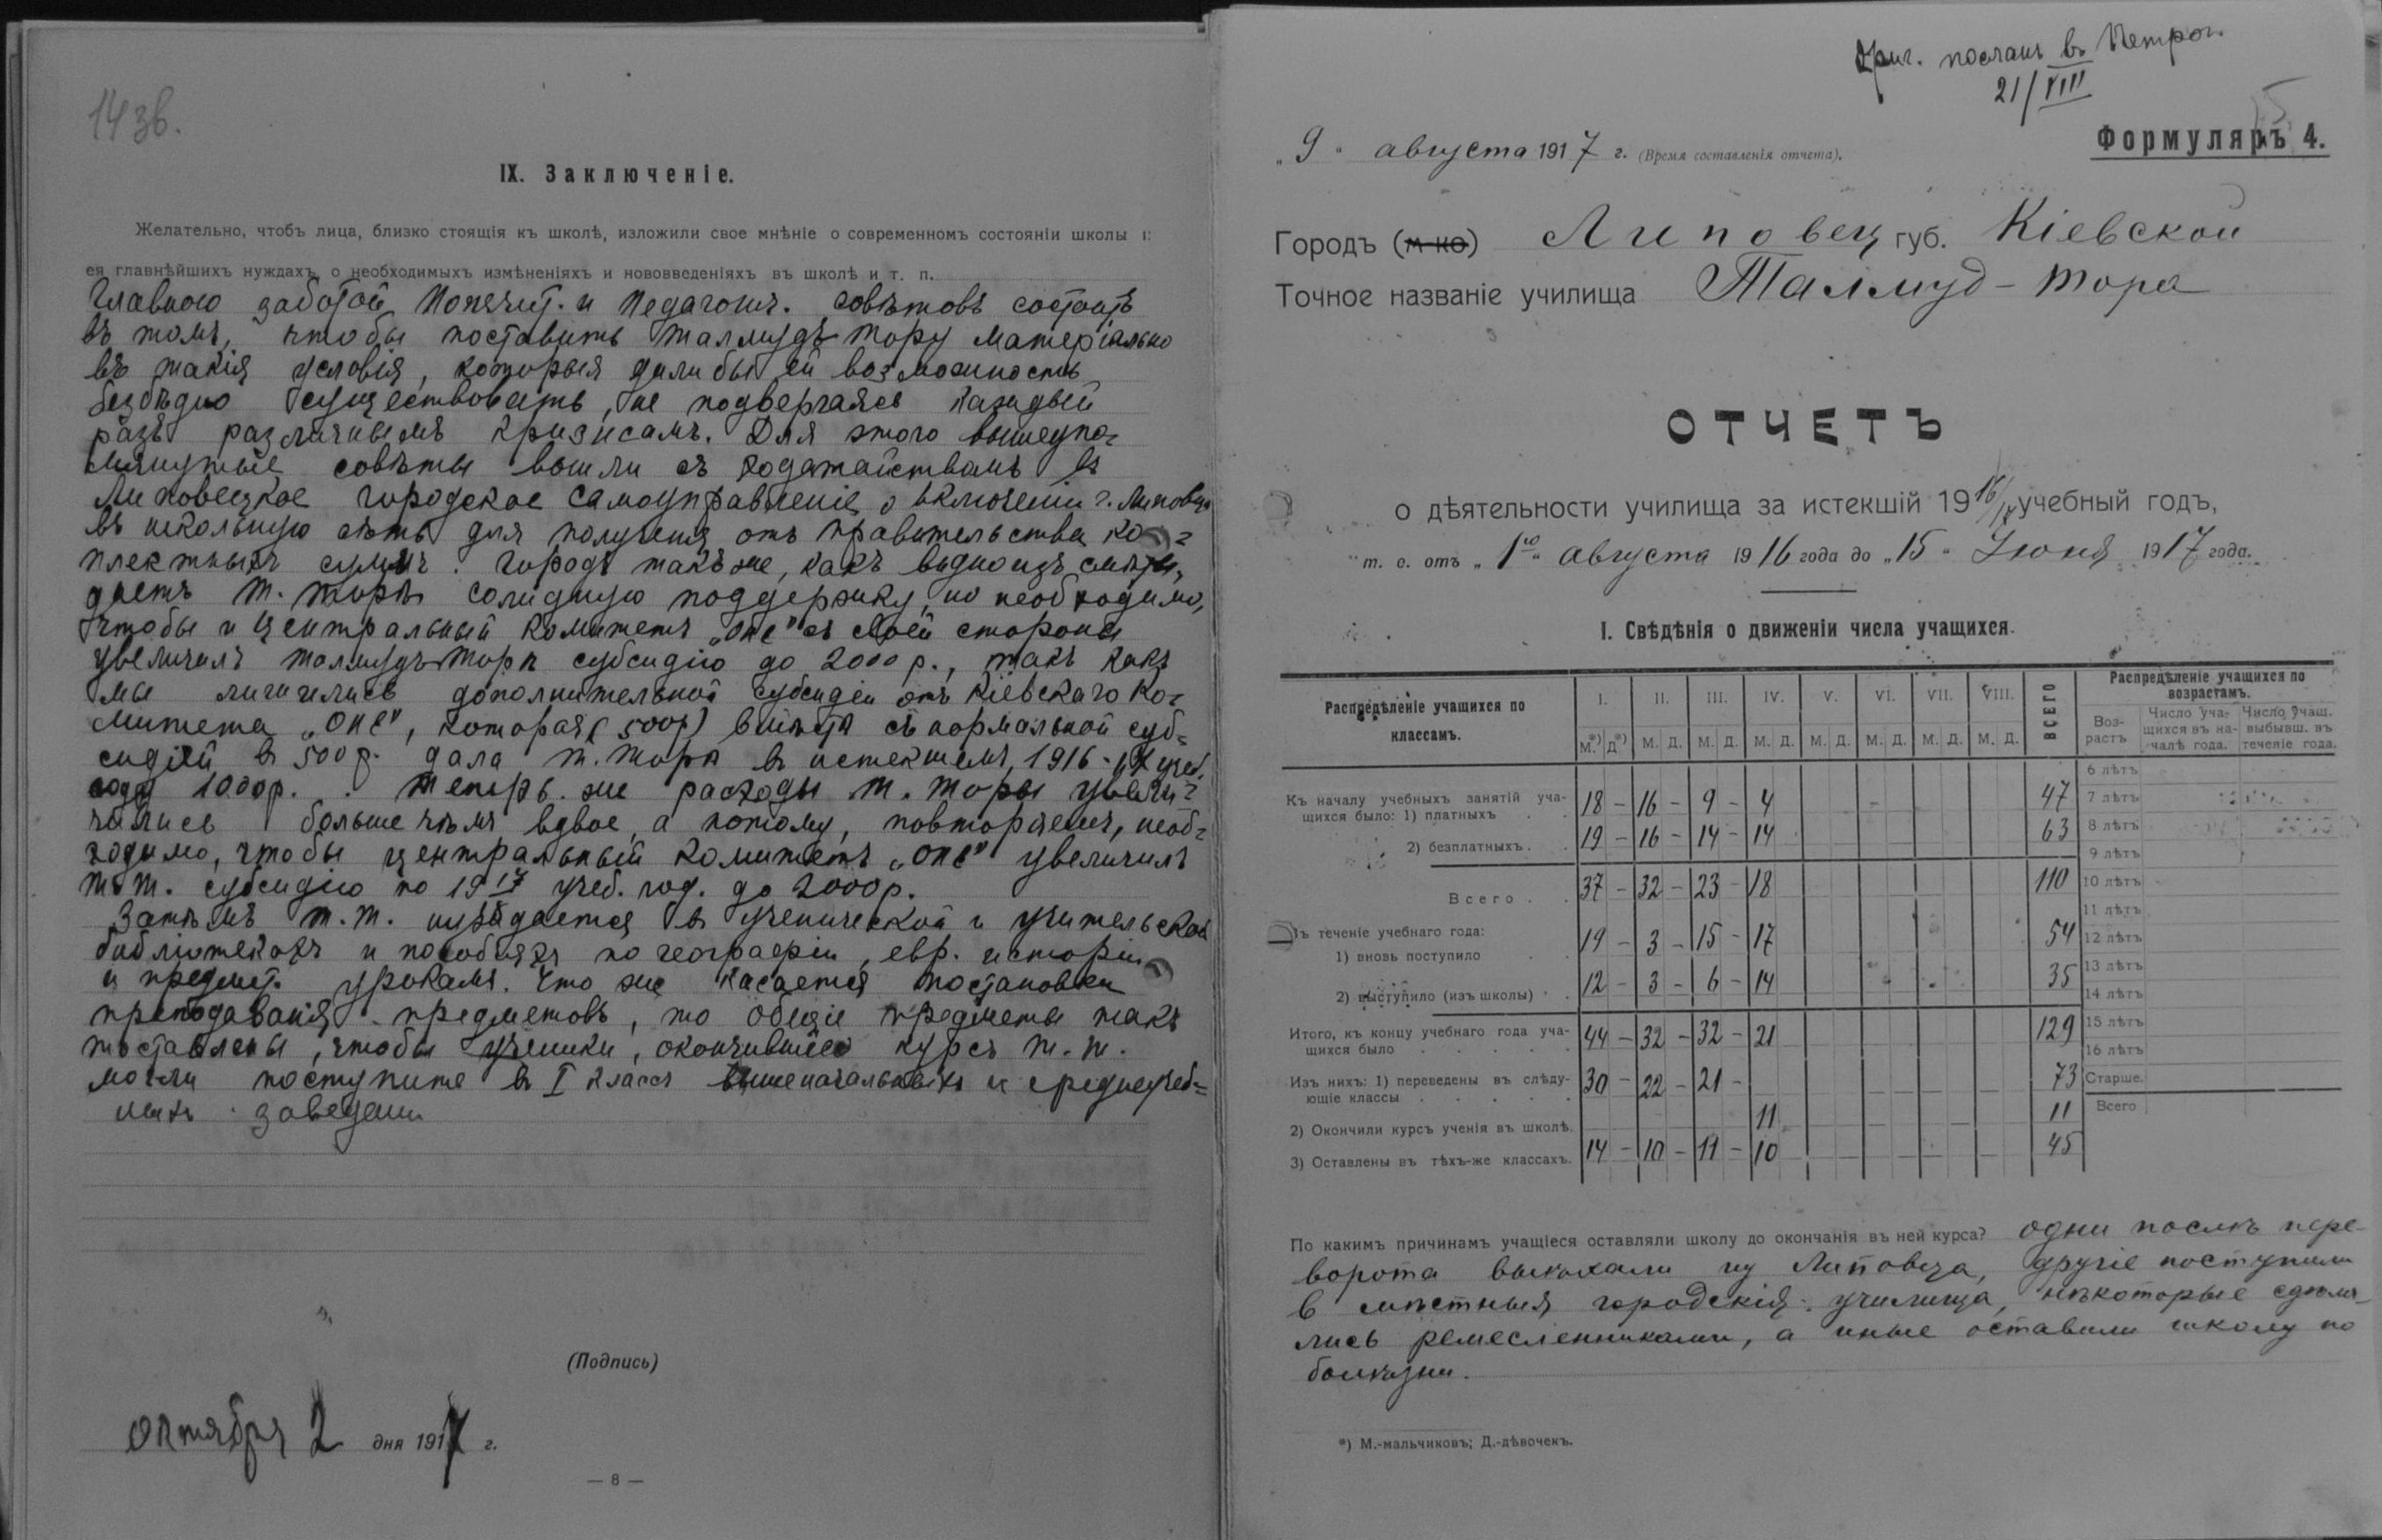 14 зв.
IX. Заключеніе.
Желательно, чтобъ лица, близко стоящія къ школѣ, изложили свое мнѣніе о современномъ состояніи школы
ея главнѣйшихъ нуждахъ, о необходимыхъ измѣненіяхъ и нововведеніяхъ въ школѣ и т. п.
Главною заботой Попечит. и Педагогич. совѣтовъ состоитъ
въ томъ, чтобы поставить Талмудъ Тору матеріально
въ такія условія, которыя дали бы ей возможность
безбѣдно существовать, не подвергаясь каждый
разъ различнымъ кризисамъ. Для этого вышеупо-
мянутые совѣты вошли съ ходатайствамъ въ
Липовецкое городское самоуправленіе о включеніи г. Липовца
въ школьную сѣть для полученія отъ правительства ко-
плектныхъ суммъ. Городъ также, какъ видно изъ смѣты,
даетъ Т. Торѣ солидную поддержку, но необходимо,
чтобы и центральный комитетъ „ОПЕ" съ своей стороны
увеличилъ Талмудъ Торѣ субсидію до 2000 р., такъ какъ
мы лишились дополнительной субсидіи отъ Кіевскаго Ко-
митета „ОПЕ", которая (500 р) вмѣстѣ съ нормальной суб-
сидіей въ 500 р. дала Т. Торѣ в истекшемъ 1916-17 учеб.
году 1000 р. Теперь же расходы Т. Торы увели-
чились больше чѣмъ вдвое, а потому, повторяемъ, необ-
ходимо, чтобы центральный комитетъ „ОПЕ" увеличилъ
Т. Т. субсидію по 19 17 учеб. год. до 2000 р.
Затѣмъ Т. Т. нуждается въ ученической и учительской
библіотекахъ и пособіяхъ по географіи, евр. исторіи
и предмет. урокамъ. Что же касается постановки
преподаванія предметовъ, то общіе предметы такъ
поставлены, чтобы ученики, окончившіе курсъ Т. Т.
могли поступить въ I классъ вышеначальныхъ и среднеучеб-
ныхъ заведеній
(Подпись)
Октября 2 дня 1917 г.
— 8 —
Ориг. посланъ въ Петрог.
21/VIII
15
„9" августа 1917 г. (Время составленія отчета).
Формуляръ 4.
Городъ (м-ко) Липовец губ. Кіевской
Точное названіе училища Талмуд-Тора
ОТЧЕТЪ
о дѣятельности училища за истекшій 1916/17 учебный годъ,
т. е. отъ „1го" августа 1916 года до „15" Іюня 1917 года.
I. Свѣдѣнія о движеніи числа учащихся.
Распредѣленіе учащихся по классамъ. I. II. III. IV. V. VI. VII. VIII. ВСЕГО Распредѣленіе учащихся по возрастамъ.
М.*) Д*) М. Д. М. Д. М. Д. М. Д. М. Д. М. Д. М. Д. Воз-растъ Число уча-щихся въ на-чалѣ года. Число учащ. выбывш. въ теченіе года.
Къ началу учебныхъ занятій уча-
щихся было: 1) платныхъ 18 – 16 – 9 – 4 47
2) безплатныхъ. 19 – 16 – 14 – 14 63
Всего 37 – 32 – 23 – 18 110
Въ теченіе учебнаго года:
1) вновь поступило 19 – 3 – 15 – 17 54
2) выступило (изъ школы) 12 – 3 – 6 – 14 35
Итого, къ концу учебнаго года уча-
щихся было 44 – 32 – 32 – 21 129
Изъ нихъ: 1) переведены въ слѣду-
ющіе классы 30 – 22 – 21 – 73
2) Окончили курсъ ученія въ школѣ. 11 11
3) Оставлены въ тѣхъ-же классахъ. 14 – 10 – 11 – 10 45
6 лѣтъ
7 лѣтъ
8 лѣтъ
9 лѣтъ
10 лѣтъ
11 лѣтъ
12 лѣтъ
13 лѣтъ
14 лѣтъ
15 лѣтъ
16 лѣтъ
Старше.
Всего
По какимъ причинамъ учащіеся оставляли школу до окончанія въ ней курса? одни послѣ пере-
ворота выѣхали из Липовца, другіе поступили
в мѣстныя городскія училища, нѣкоторые сдѣла-
лись ремесленниками, а иные оставили школу по
болѣзни.
*) М.-мальчиковъ; Д.-дѣвочекъ.